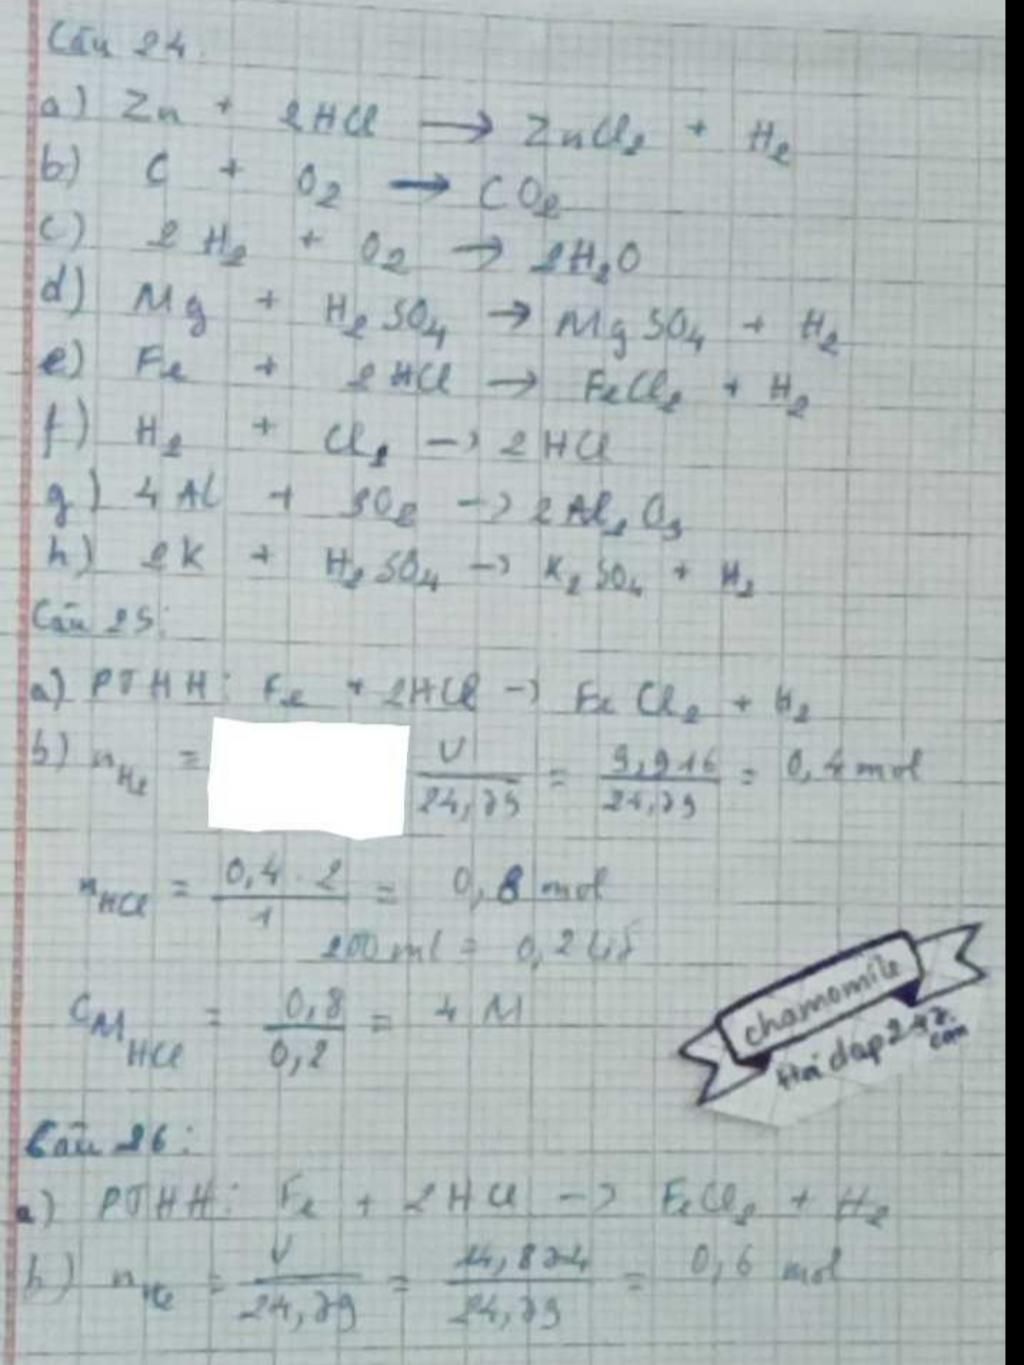 Câu 24.
a) Zn + 2HCl → ZnCl₂ + H₂
b) C + O₂ → CO₂
c) 2H₂ + O₂ → 2H₂O
d) Mg + H₂SO₄ → MgSO₄ + H₂
e) Fe + 2HCl → FeCl₂ + H₂
f) H₂ + Cl₂ → 2HCl
g) 4Al + 3O₂ → 2Al₂O₃
h) 2K + H₂SO₄ → K₂SO₄ + H₂
Câu 25:
a) PTHH: Fe + 2HCl → FeCl₂ + H₂
b) nH₂ = V/24,79 = 9,916/24,79 = 0,4 mol
nHCl = 0,4 . 2/1 = 0,8 mol
200ml = 0,2 lít
CM HCl = 0,8/0,2 = 4 M
chamomile
Hoidap247.com
Câu 26:
a) PTHH: Fe + 2HCl → FeCl₂ + H₂
b) nH₂ = V/24,79 = 14,874/24,79 = 0,6 mol